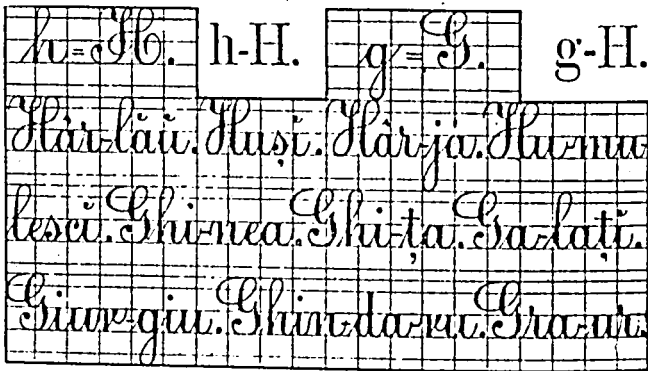 h=H. h-H. g=G. g-H.
Hâr-lăŭ. Huşĭ. Hâr-ja. Hu-mu-
lescĭ. Ghi-nea. Ghi-ţa. Ga-laţĭ.
Giur-giu. Ghin-da-ru. Gra-ur.